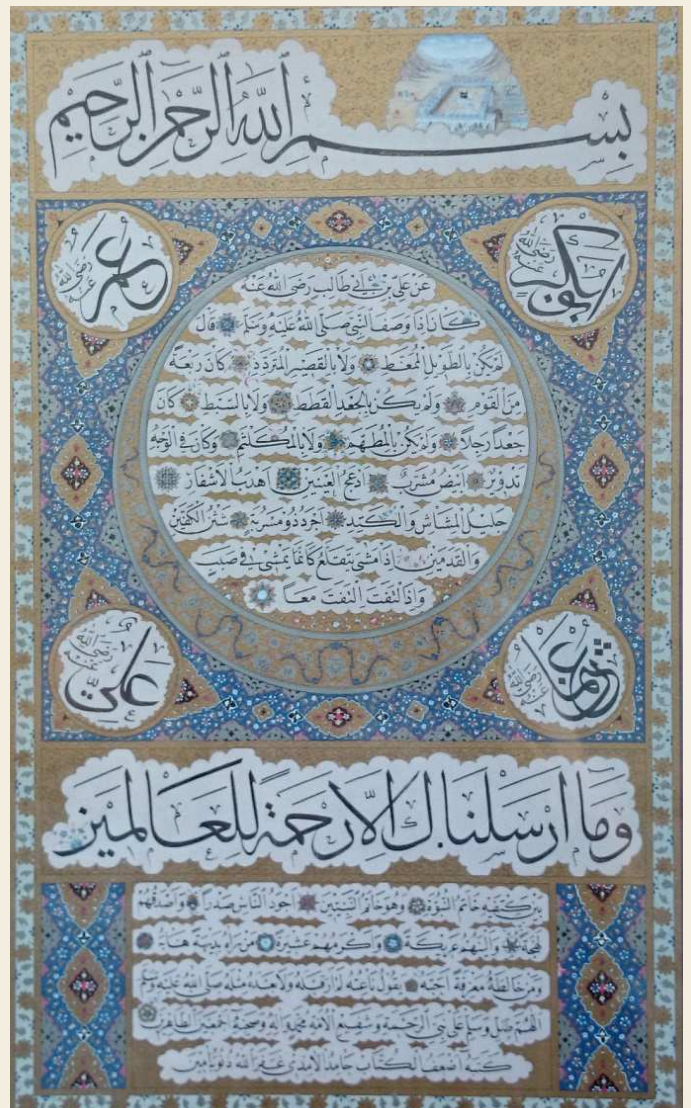 بسم الله الرحمن الرحيم
ابو بكر رضي الله عنه
عمر رضي الله عنه
عن علي بن ابي طالب رضي الله عنه
كان اذا وصف النبي صلى الله عليه وسلم قال
لم يكن بالطويل الممغط ولا بالقصير المتردد كان ربعة
من القوم ولم يكن بالجعد القطط ولا بالسبط كان
جعدا رجلا ولم يكن بالمطهم ولا بالمكلثم وكان في الوجه
تدوير ابيض مشرب ادعج العينين اهدب الاشفار
جليل المشاش والكتد اجرد ذو مسربة شثن الكفين
والقدمين اذا مشى يتقلع كانما يمشي في صبب
واذا التفت التفت معا
عثمان رضي الله عنه
علي رضي الله عنه
وما ارسلناك الا رحمة للعالمين
بين كتفيه خاتم النبوة وهو خاتم النبيين اجود الناس صدرا واصدقهم
لهجة والينهم عريكة واكرمهم عشيرة من راه بديهة هابه
ومن خالطه معرفة احبه يقول ناعته لم ار قبله ولا بعده مثله صلى الله عليه وسلم
اللهم صل وسلم على نبي الرحمة وشفيع الامة محمد واله وصحبه اجمعين الطاهرين
كتبه اضعف الكتاب حامد الآمدي غفر الله ذنوبه امين